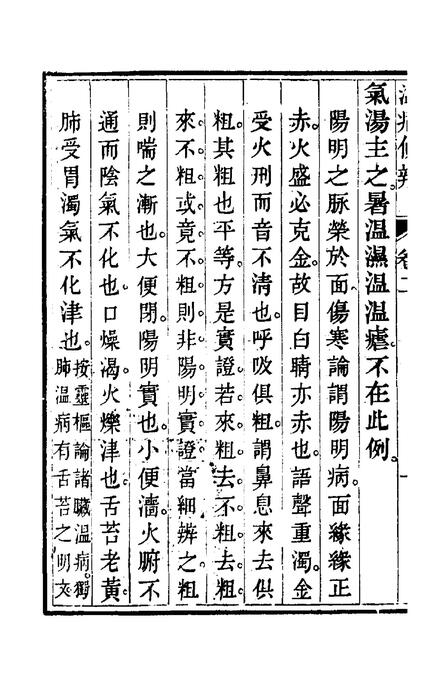 氣湯主之。暑温濕温温瘧。不在此例。
陽明之脉榮於面。傷寒論謂陽明病。面緣緣正
赤。火盛必克金。故目白睛亦赤也。語聲重濁。金
受火刑而音不清也。呼吸俱粗。謂鼻息來去俱
粗。其粗也平等。方是實證。若來粗去不粗。去粗
來不粗。或竟不粗。則非陽明實證。當細辨之。粗
則喘之漸也。大便閉。陽明實也。小便濇。火腑不
通。而陰氣不化也。口燥渴。火爍津也。舌苔老黃。
肺受胃濁。氣不化津也。按靈樞論諸臟温病。獨
肺温病有舌苔之明文